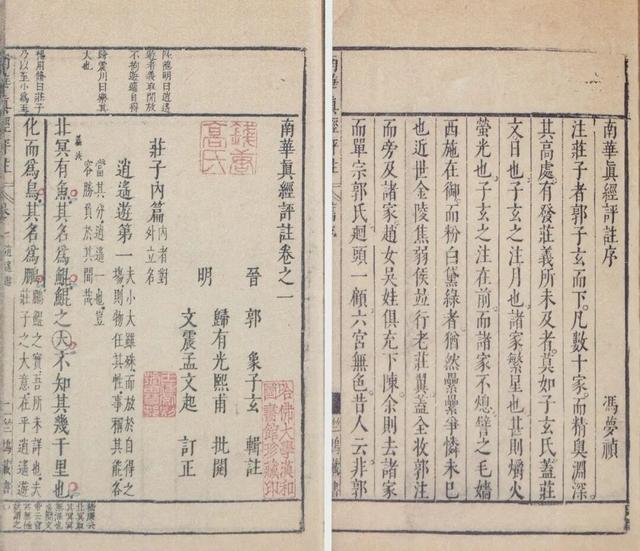 南華眞經評註序
馮夢禎
注莊子者郭子玄而下凡數十家而精奥淵深
其高處有發莊義所未及者莫如子玄氏蓋莊
文日也子玄之注月也諸家繁星也甚則爝火
螢光也子玄之注在前而諸家不熄譬之毛嬙
西施在御而粉白黛綠者猶然纍纍爭憐未已
也近世金陵焦弱侯並行老莊翼蓋全收郭注
而旁及諸家趙女吳姓俱充下陳余則去諸家
而單宗郭氏迴頭一顧六宮無色昔人云非郭
南華眞經評註
南華眞經評註卷之一
晉 郭 象子玄 輯註
明 歸有光熙甫 批閱
文震孟文起 訂正
莊子內篇
內者對
外立名
逍遙遊第一
夫小大雖殊而放於自得之
場則物任其性事稱其能各
當其分逍遙一也豈
容勝負於其間哉
北冥有魚其名爲鯤鯤之大不知其幾千里也
化而爲鳥其名爲鵬
鵬鯤之實吾所未詳也夫
莊子之大意在乎逍遙遊
南華眞經評註
歸震川曰樂其
大也
楊用脩曰莊子
乃以至小爲至
哈佛大學漢和
圖書館珍藏印